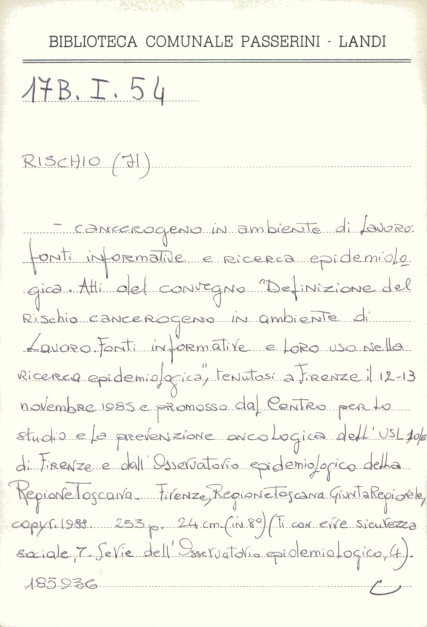 BIBLIOTECA COMUNALE PASSERINI - LANDI
17B. I. 54
RISCHIO (Il)
- cancerogeno in ambiente di lavoro.
fonti informative e ricerca epidemiolo
gica. Atti del convegno "Definizione del
Rischio cancerogeno in ambiente di
Lavoro. Fonti informative e loro uso nella
ricerca epidemiologica", tenutosi a Firenze il 12-13
novembre 1985 e promosso dal Centro per lo
studio e la prevenzione oncologica dell'USL 10/e
di Firenze e dall'Osservatorio epidemiologico della
Regione Toscana. Firenze, Regione Toscana Giunta Regionale,
copyr. 1988. 253 p. 24 cm. (in 8°) (Ti con erre sicurezza
sociale, 7. Serie dell'Osservatorio epidemiologico, 4).
185936